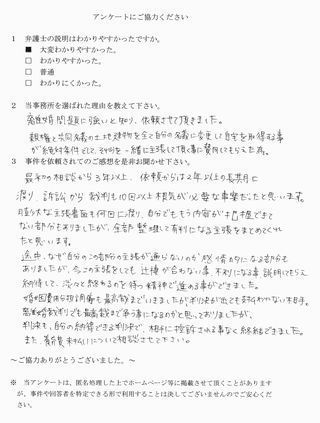 アンケートにご協力ください
1 弁護士の説明はわかりやすかったですか。
■ 大変わかりやすかった。
□ わかりやすかった。
□ 普通
□ わかりにくかった。
2 当事務所を選ばれた理由を教えて下さい。
離婚問題に強いと知り、依頼させて頂きました。
親権と共同名義の土地建物を全て自分の名義に変更して自宅を取得する事
が絶対条件でして、それを一緒に主張して頂く事に賛同してもらえた為。
3 事件を依頼されてのご感想を是非お聞かせ下さい。
最初の相談から3年以上、依頼からは2年以上の長期に
渡り、訴訟から裁判も10回以上と根気が必要な事案だったと思います。
膨大な主張書面も何回に渡り、自分でももう内容が把握できて
ない部分もありましたが、全部整理して有利になる主張をまとめてくれ
たと思います。
途中、なぜ自分のこの部分の主張が通らないのか感情的になる部分も
ありましたが、今この主張をしても辻褄が合わない事、不利になる事説明してもらえ
納得して、淡々と終わるのを待つ精神で進める事ができました。
婚姻費用分担調停も最高裁までいきましたが判決が出ても支払わない相手。
離婚裁判でも最高裁まで争う事になるのかと思っておりましたが、
判決も、自分の納得できる判決で、相手に控訴される事なく終結できました。
また、養育費未払いについて相談させて下さい。
～ご協力ありがとうございました。～
※ 当アンケートは、匿名処理した上でホームページ等に掲載させて頂くことがあります
が、事件や回答者を特定できる形で利用することは決してございませんのでご安心くだ
さい。